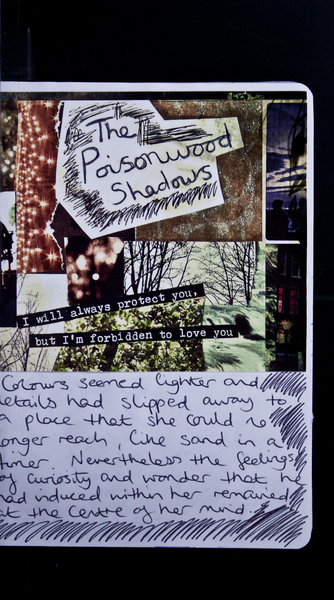 The
Poisonwood
Shadows
I will always protect you,
but I'm forbidden to love you
Colours seemed lighter and
details had slipped away to
a place that she could no
longer reach, like sand in a
timer. Nevertheless the feelings
of curiosity and wonder that he
had induced within her remained
at the centre of her mind.